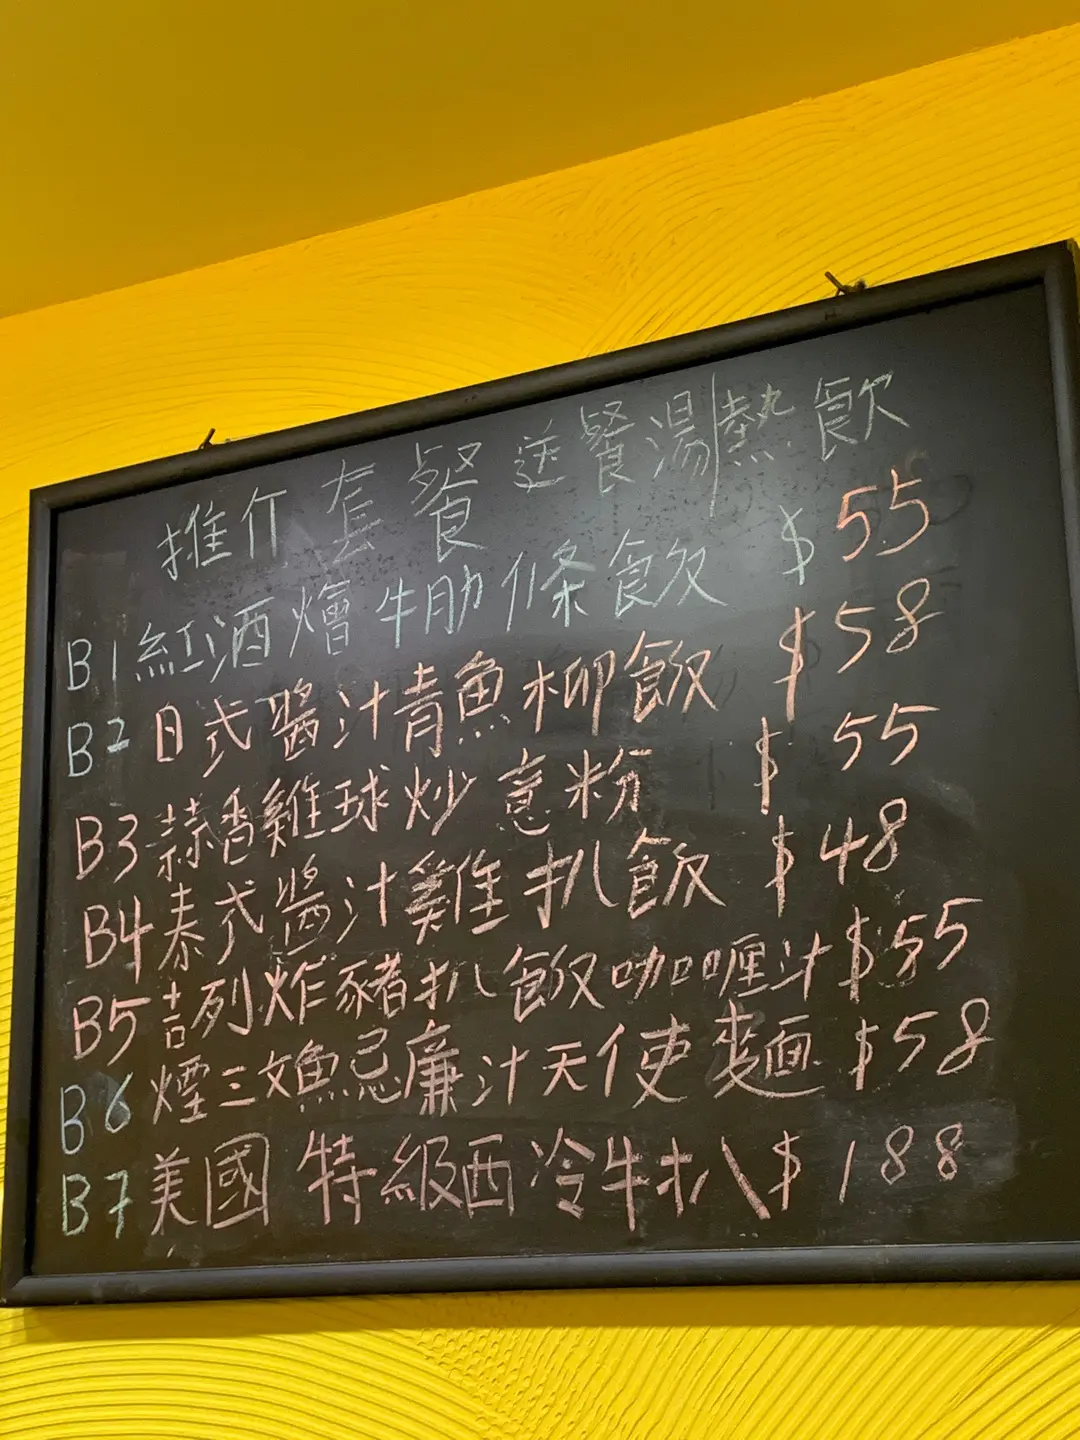 推介套餐送餐湯熱飲
B1紅酒燴牛肋條飯 $55
B2日式醬汁青魚柳飯 $58
B3蒜香雞球炒意粉 $55
B4泰式醬汁雞扒飯 $48
B5吉列炸豬扒飯咖喱汁$55
B6煙三文魚忌廉汁天使麵$58
B7美國特級西冷牛扒$188